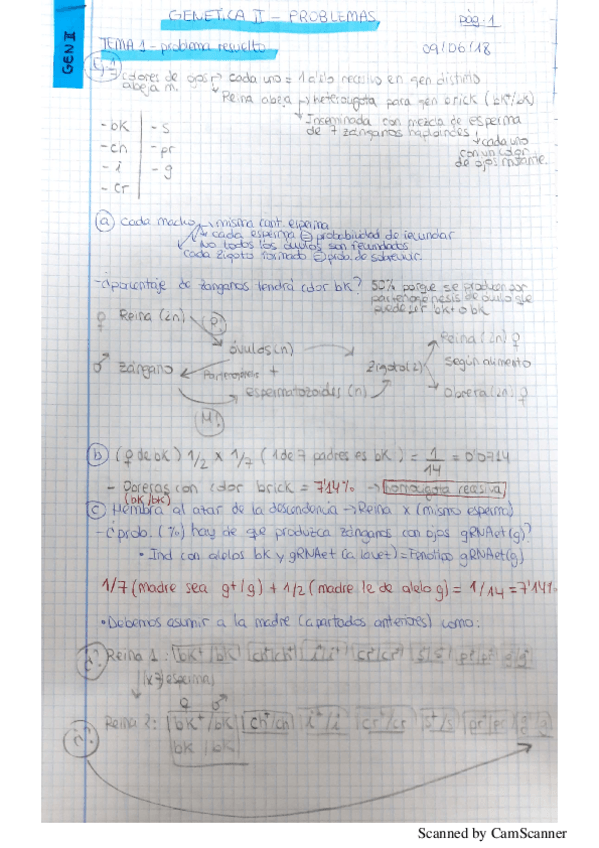 GENETICA II - PROBLEMAS
pág: 1
GEN II
TEMA 1 - problema resuelto
09/06/18
colores de ojos → cada uno = 1 alelo recesivo en gen distinto
abeja m.
Reina abeja → heterozigota para gen brick (bk⁺/bk)
Inseminada con mezcla de esperma
de 7 zánganos haploides
cada uno
con un color
de ojos mutante.
- bk | - s
- ch | - pr
- i | - g
- cr
a) Cada macho → misma cant. esperma
cada esperma = probabilidad de fecundar
No todos los óvulos son fecundados
Cada zigoto formado = prob. de sobrevivir.
- ¿porcentaje de zánganos tendrá color bk? 50% porque se producen por
partenogénesis de óvulo que
puede ser bk⁺ o bk
♀ Reina (2n)
óvulos (n)
Reina (2n) ♀
♂ zángano
+
Zigoto (2n)
según alimento
espermatozoides (n)
Obrera (2n) ♀
M!
b) (♀ de bk) 1/2 x 1/7 (1 de 7 padres es bk) = 1/14 = 0'0714
- Obreras con color brick = 7'14% → homozigota recesiva
(bk/bk)
c) Hembra al azar de la descendencia → Reina x (mismo esperma)
- ¿prob. (%) hay de que produzca zánganos con ojos gRNAet (g)?
• Ind con alelos bk y gRNAet (a la vez) = Fenotipo gRNAet (g)
1/7 (madre sea g⁺/g) + 1/2 (madre le de alelo g) = 1/14 = 7'14%
• Debemos asumir a la madre (apartados anteriores) como:
¿? Reina 1: bk⁺/bk ch⁺/ch⁺ i⁺/i⁺ cr⁺/cr⁺
(x7) espermas
♀ ♂
Reina 2: bk⁺/bk ch⁺/ch i⁺/i cr⁺/cr s⁺/s
bk/bk
Scanned by CamScanner